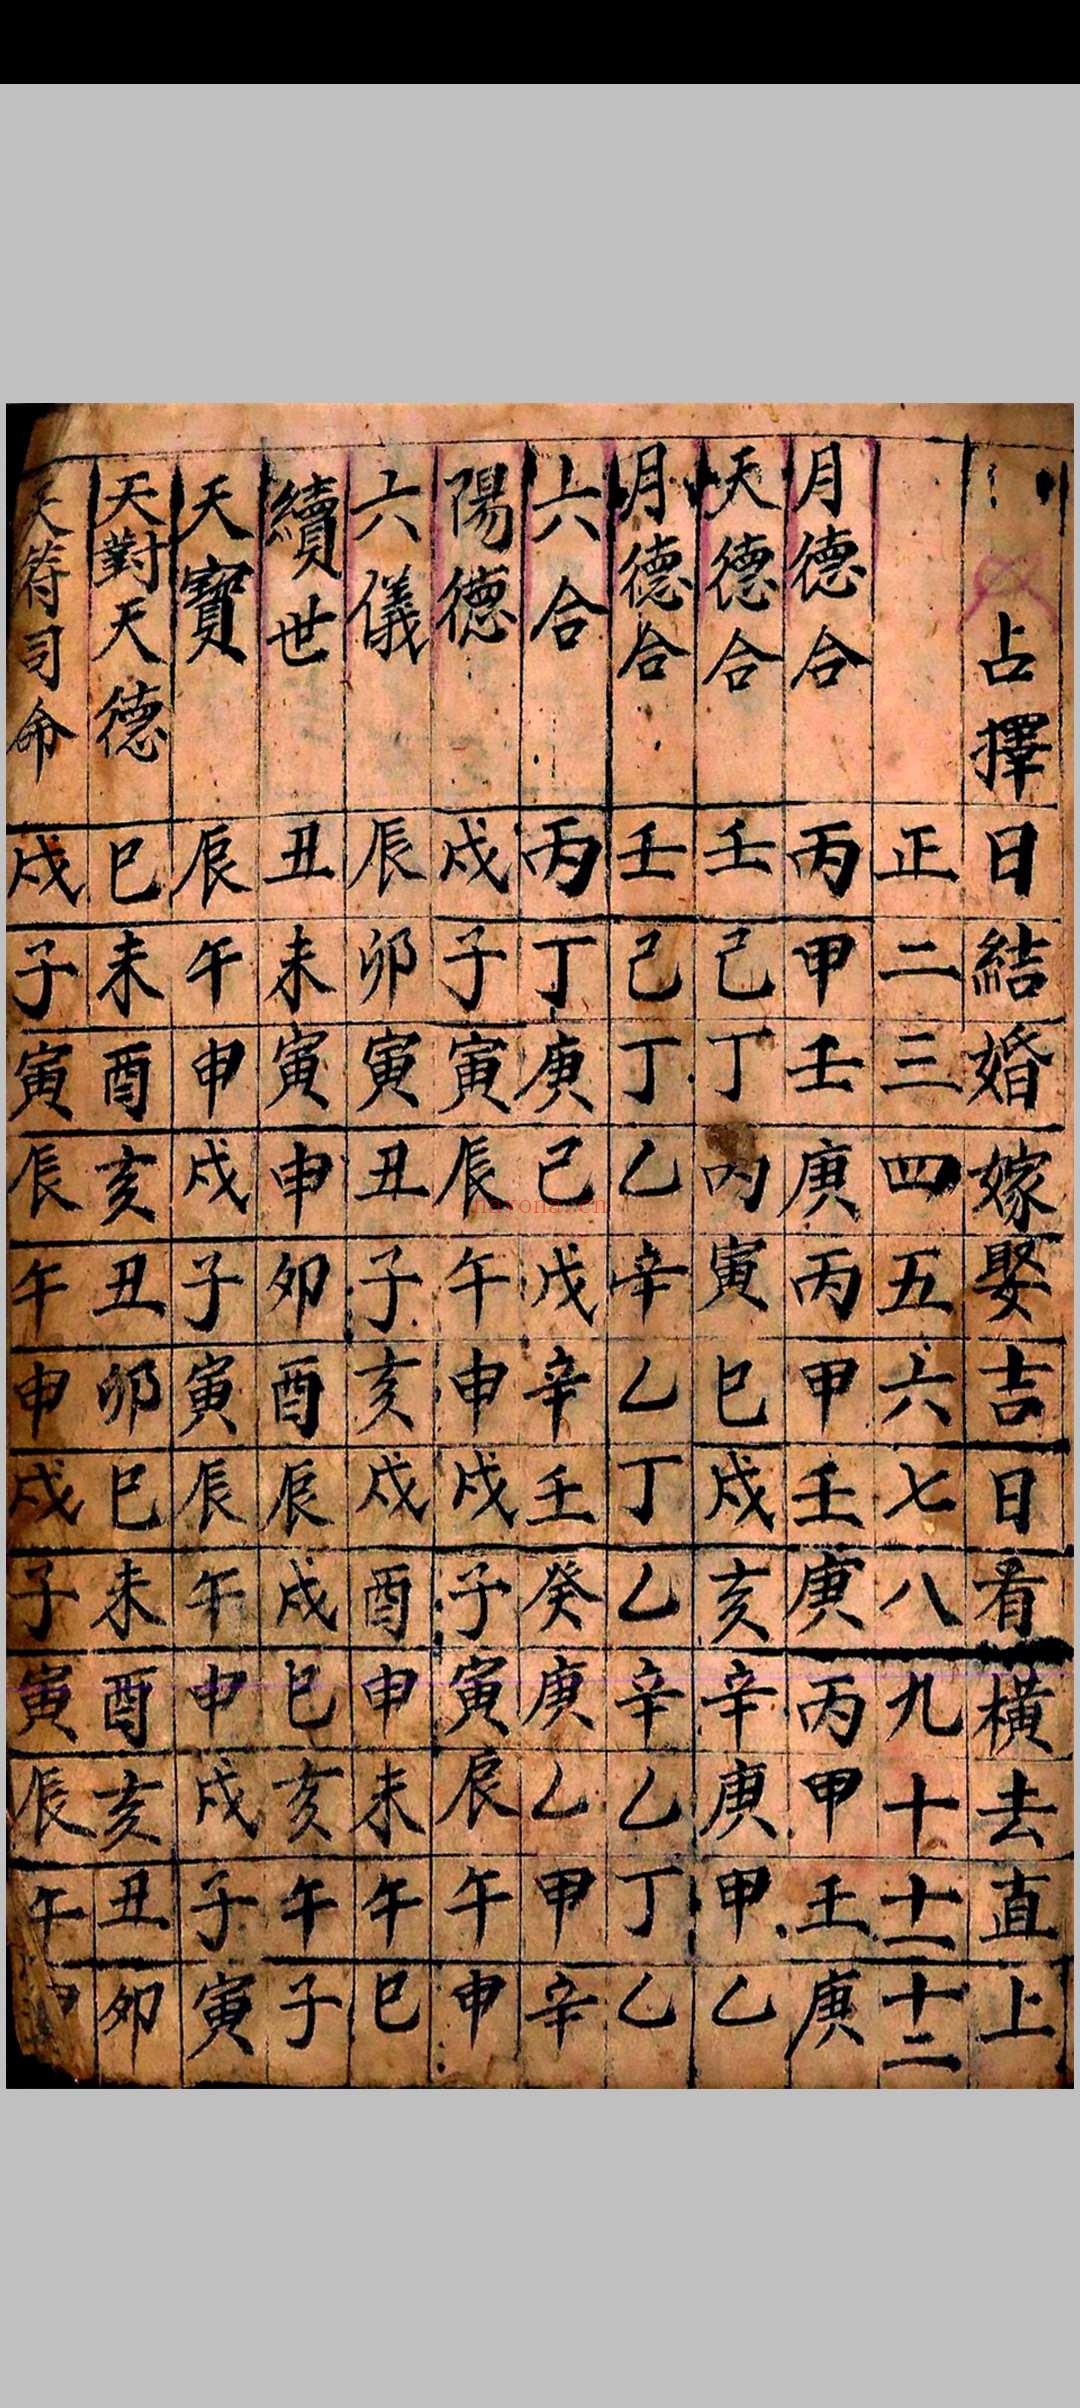 占擇日結婚嫁娶吉日看橫去直上
正二三四五六七八九十十一十二
月德合丙甲壬庚丙甲壬庚丙甲壬庚
天德合壬己丁丙寅巳戌亥辛庚甲乙
月德合壬己丁乙辛乙丁乙辛乙丁乙
六合丙丁庚己戊辛壬癸庚乙甲辛
陽德戌子寅辰午申戌子寅辰午申
六儀辰卯寅丑子亥戌酉申未午巳
續世丑未寅申卯酉辰戌巳亥午子
天寶辰午申戌子寅辰午申戌子寅
天對天德巳未酉亥丑卯巳未酉亥丑卯
天符司命戌子寅辰午申戌子寅辰午申
nayona.cn